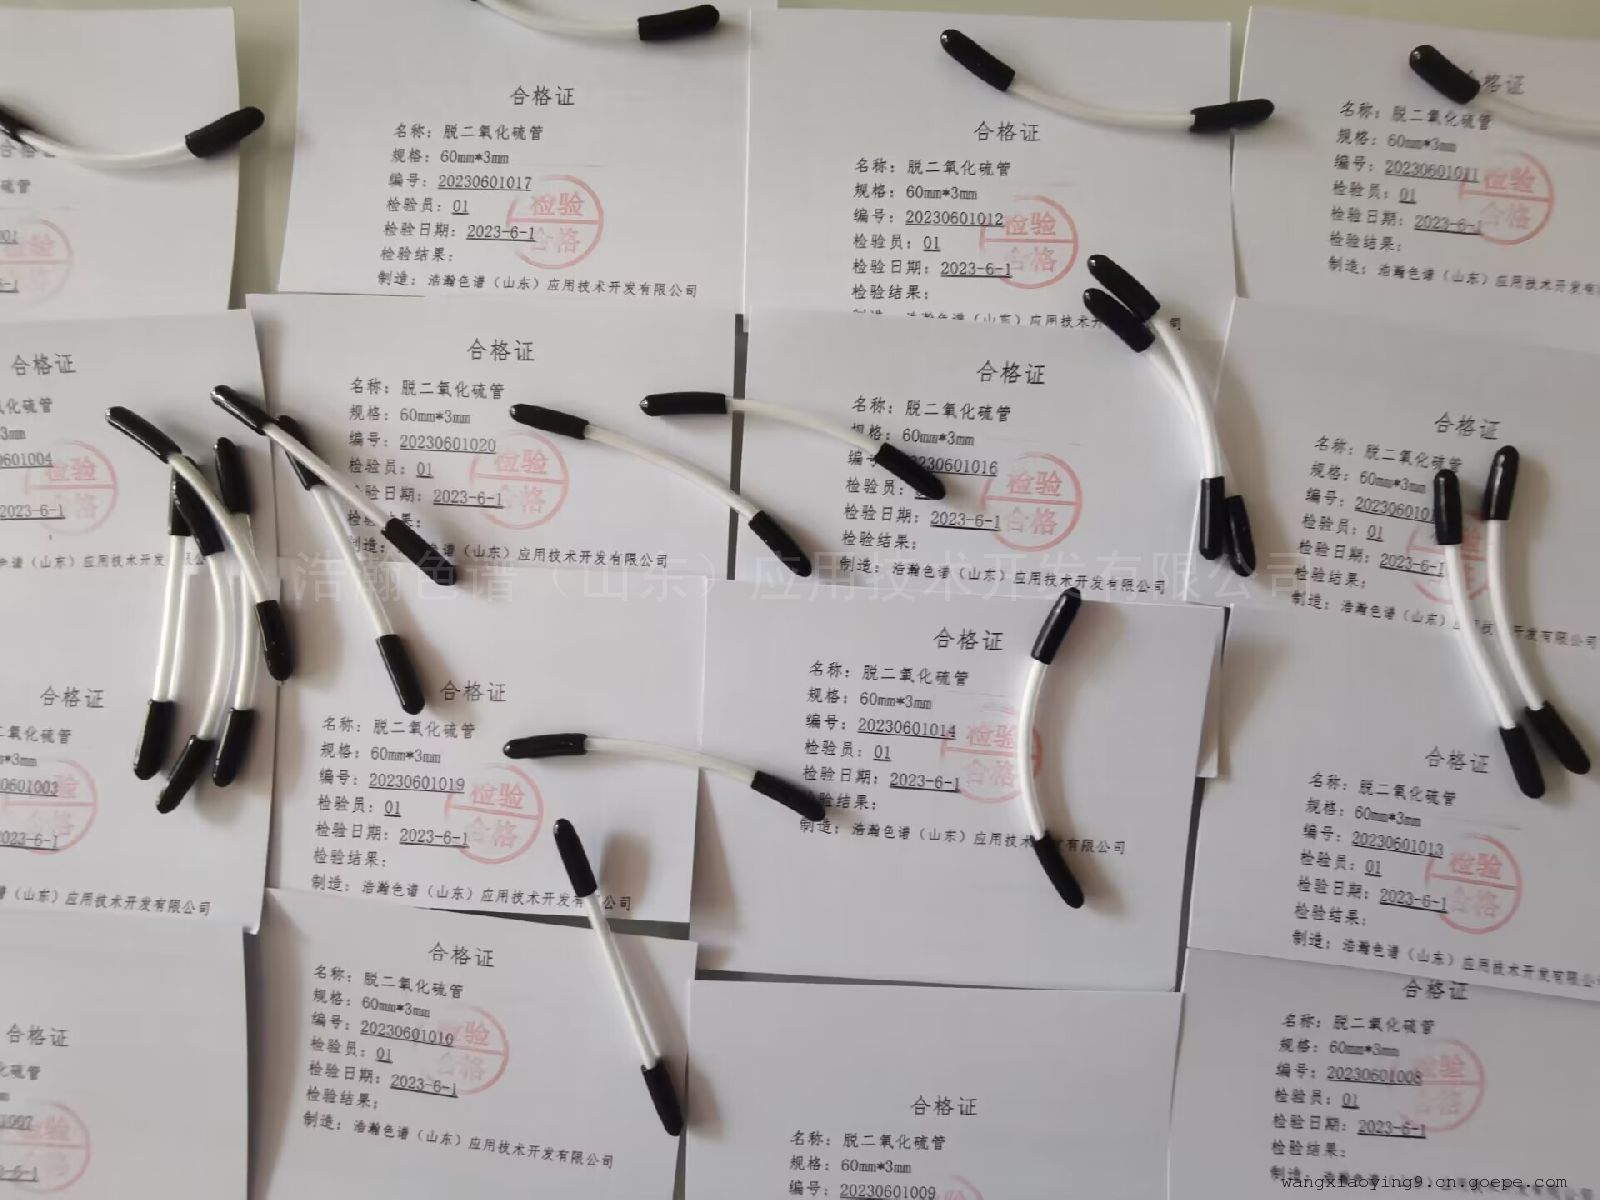 合格证
名称：脱二氧化硫管
规格：60mm*3mm
编号：20230601017
检验员：01
检验日期：2023-6-1
检验结果：
制造：浩瀚色谱（山东）应用技术开发有限公司
检验
合格
合格证
名称：脱二氧化硫管
规格：60mm*3mm
编号：20230601012
检验员：01
检验日期：2023-6-1
检验结果：
检验
合格
格证
名称：脱二氧化硫管
规格：60mm*3mm
编号：20230601011
检验员：01
检验日期：2023-6-1
检验结果：
制造：浩瀚色谱（山东）应用技术开发有
检验
合格
硫管
合格证
化硫管
3mm
601004
2023-6-1
检验
合格
合格证
名称：脱二氧化硫管
规格：60mm*3mm
编号：20230601020
检验员：01
检验日期：2023-6-1
制造：色谱（山东）应用技术开发有限公司
检验
合格
合格证
名称：脱二氧化硫管
规格：60mm*3mm
编 20230601016
检验员：
检验日期：2023-6-1
检验结果：
制造：浩瀚色谱（山东）应用技术开发有限公司
检验
合格
合格证
名称：脱二氧化硫管
规格：60mm*3mm
编号：202306010
检验员：01
检验日期：2023-6-1
检验结果：
制造：浩瀚色谱（山东）技术开发有限公司
浩瀚色谱（山东）应用技术开发有限公司
合格证
二氧化硫管
*3mm
0601003
2023-6-1
（山东）应用技术开发有限公司
合格证
名称：脱二氧化硫管
规格：60mm*3mm
编号：20230601019
检验员：01
检验日期：2023-6-1
检验结果：
制造：浩瀚色谱（山东）应用技术开发有公司
检验
合格
合格证
名称：脱二氧化硫管
规格：60mm*3mm
编号：20230601014
检验员：01
检验日期：2023-6-1
验结果：
制造：浩瀚色谱（山东）应用技术有限公司
检验
合格
合格证
名称：脱二氧化硫管
规格：60mm*3mm
编号：20230601013
检验员：01
检验日期：2023-6-1
检验结果：
制造：浩瀚色谱（山东）应用技术开发有限公
检验
合格
合格证
化硫管
合格证
名称：脱二氧化硫管
规格：60mm*3mm
编号：20230601010
检验员：01
检验日期：2023-6-1
检验结果：
制造：浩瀚色谱（山东）应用技术开发有限公司
验
合格
合格证
名称：脱二氧化硫管
规格：60mm*3mm
编号：20230601009
合格证
名称：脱二氧化硫管
规格：60mm*3mm
编号：20230601008
检验员：01
检验日期：2023-6-1
检验结果：
wangxiaoying9.cn.goepe.com